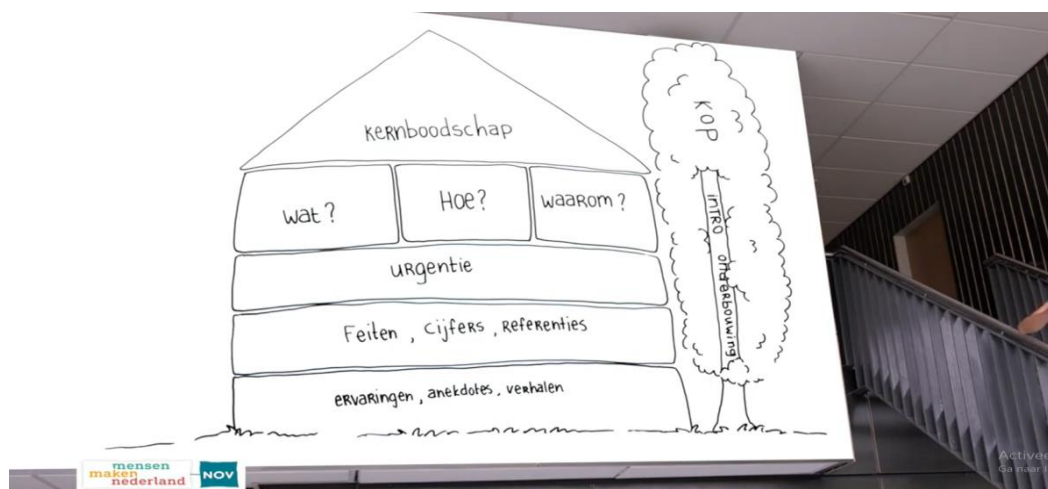 kernboodschap
wat?
Hoe?
waarom?
urgentie
Feiten, cijfers, referenties
ervaringen, anekdotes, verhalen
KOP
iNTRO
onderbouwing
mensen
maken
nederland
NOV
Activee
Ga naar I